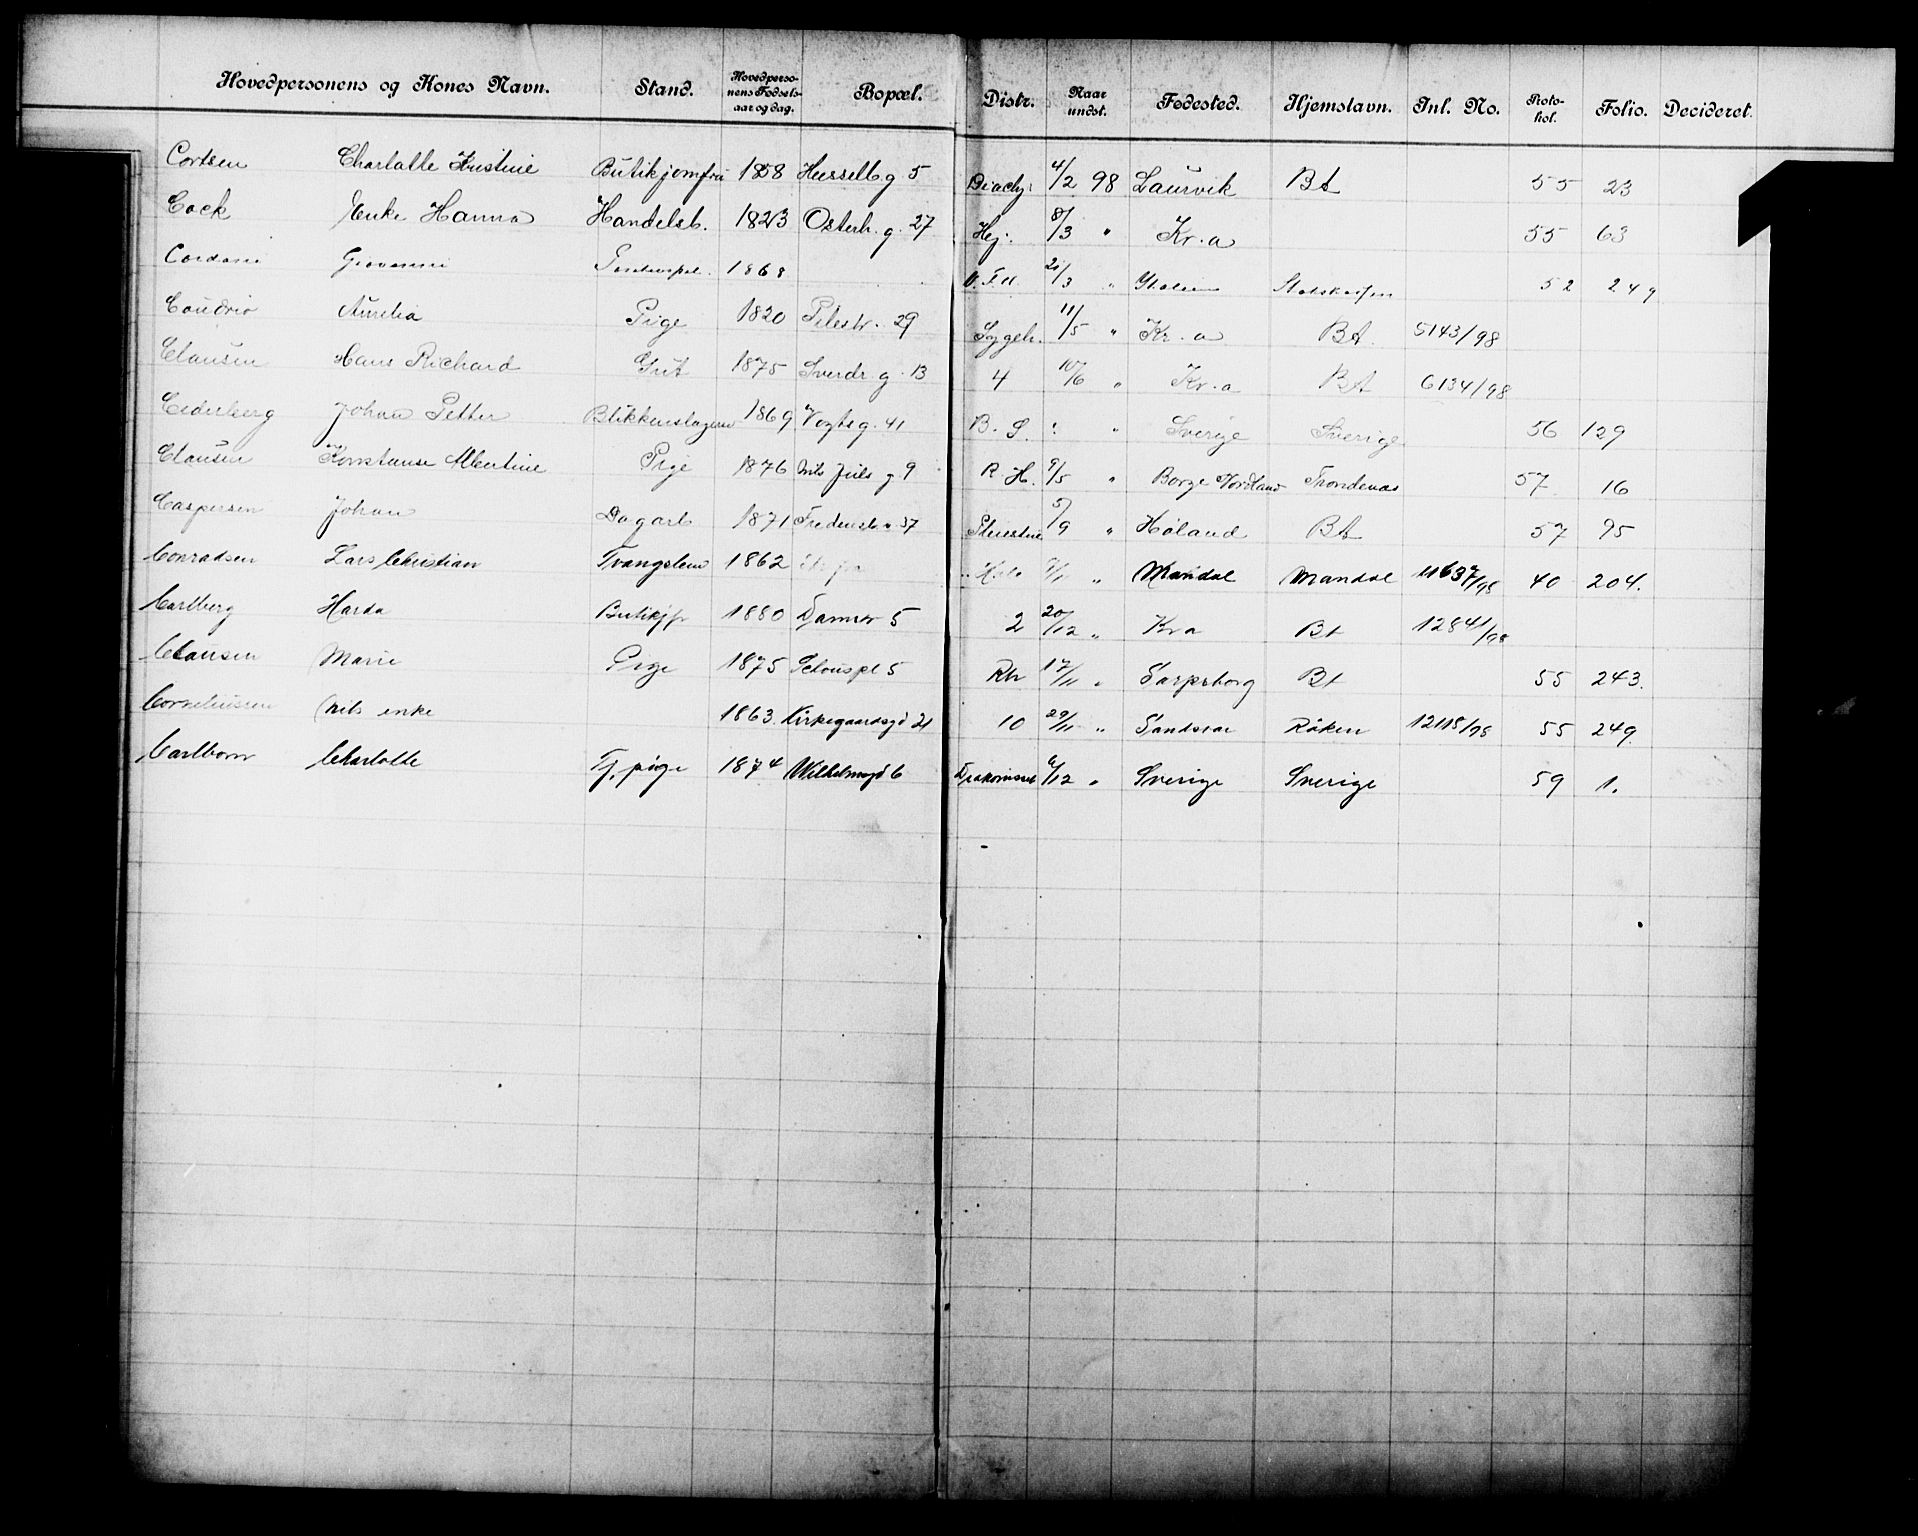 Hovedpersonens og Kones Navn. Stand. Hovedpersonens Fødselsaar og dag. Bopæl. Distr. Naar undst. Fødested. Hjemstavn. Inl. No. Protokol. Folio. Decideret.
Cortsen Charlotte Kristine Butikjomfru 1858 Hesselb g 5 4/2 98 Laurvik Bt 55 23
Cock Enke Hanna Handelsb. 1823 Osterh. g. 27 Hej. 8/3 " Kr.a 55 63
Cordani Giovanni 1868 21/3 " 52 249
Aurelia Pige 1820 Pilestr. 29 Sygeh. 11/5 " Kr.a Bt. 5143/98
Clausen Hans Richard Gut 1875 Sverdr g. 13 4 10/6 " Kr.a Bt 6134/98
Cederberg Johan Petter Blikkenslager 1869 Vogts g. 41 B. S. " Sverige Sverige 56 129
Clausen Konstanse Albertine Pige 1876 Nils Juels g 9 R.H. 9/5 " Borge Nordland Trondenæs 57 16
Caspersen Johan Dagarb 1871 37 5/9 " Høland Bt 57 95
Conradsen Lars Christian Tvangslem 1862 " Mandal Mandal 11637/98 40 204.
Carlberg Harda Butikjfr 1880 5 2 20/12 " Kra Bt 12841/98
Clausen Marie Pige 1875 Schouspl 5 Rh 17/11 " Sarpsborg Bt 55 243.
Corneliussen Nils enke 1863. Kirkegaardsgd 21 10 29/11 " Sandsvær Røken 12118/98 55 249.
Carlbom Charlotte Tj. pige 1874 Wilhelmsgd 6 6/12 " Sverige Sverige 59 1.